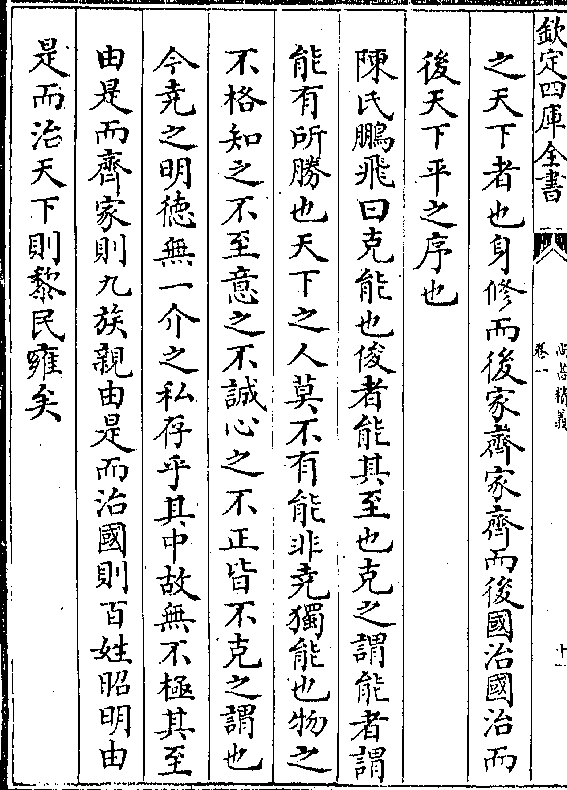 欽定四庫全書
尚書精義
卷一
十一
之天下者也身修而後家齊家齊而後國治國治而
後天下平之序也
陳氏鵬飛曰克能也俊者能其至也克之謂能者謂
能有所勝也天下之人莫不有能非堯獨能也物之
不格知之不至意之不誠心之不正皆不克之謂也
今堯之明德無一介之私存乎其中故無不極其至
由是而齊家則九族親由是而治國則百姓昭明由
是而治天下則黎民雍矣